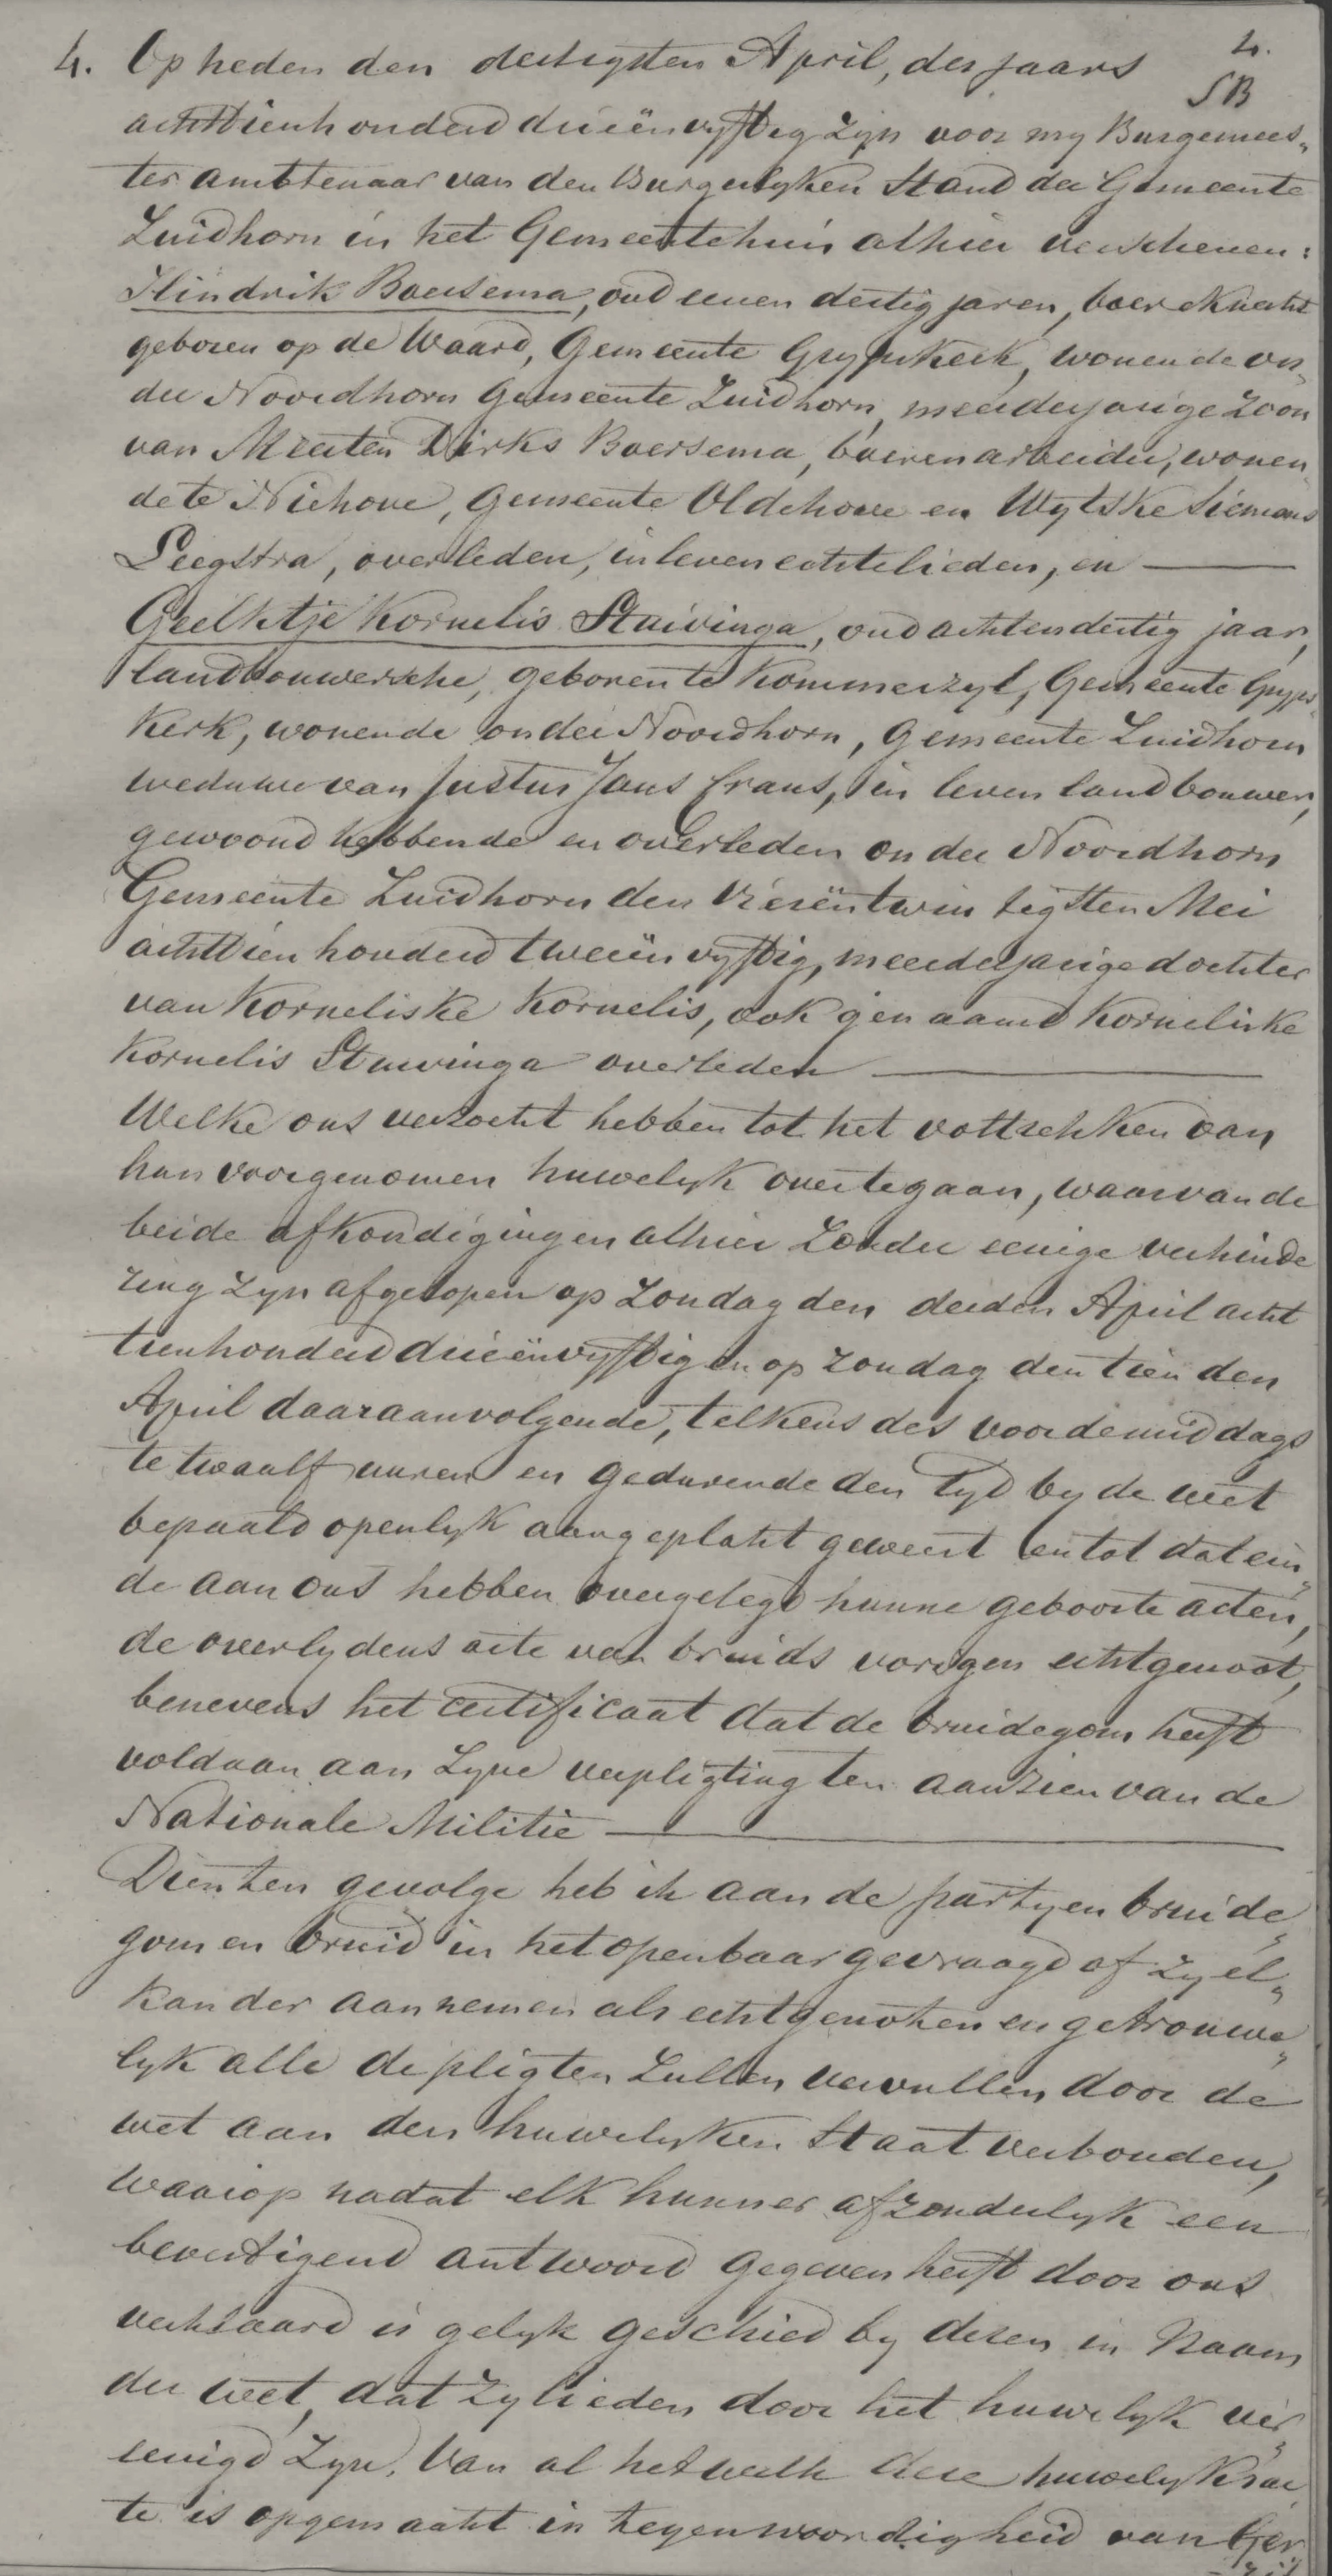 4. Op heden den dertigsten April, des jaars
4.
SB
achttienhonderd drieënvyftig zyn voor my Burgemees„
ter ambtenaar van den Burgerlyken Stand der Gemeente
Zuidhorn in het Gemeentehuis alhier verschenen:
Hindrik Boersema, oud eenen dertig jaren, boereknecht
geboren op de Waard, Gemeente Grypskerk, wonende on„
der Noordhorn Gemeente Zuidhorn, meerderjarige zoon
van Meerten Dirks Boersema, boerenarbeider, wonen„
de te Niehove, Gemeente Oldehove en Wytske Siemons
Leegstra, overleden, in leven echtelieden, en
Geelktje Kornelis Stuivinga, oud achtendertig jaar,
landbouwersche, geboren te Kommerzyl, Gemeente Gryps„
kerk, wonende onder Noordhorn, Gemeente Zuidhorn
weduwe van Justus Jans Crans, in leven landbouwer,
gewoond hebbende en overleden onder Noordhorn
Gemeente Zuidhorn den vierëntwintigsten Mei
achttienhonderd tweeënvyftig, meerderjarige dochter
van Korneliske Kornelis, ook genaamd Korneliske
Kornelis Stuivinga overleden
Welke ons verzocht hebben tot het voltrekken van
hun voorgenomen huwelyk overtegaan, waarvan de
beide afkondigingen alhier zonder eenige verhinde
ring zyn afgelopen op Zondag den derden April acht
tienhonderd drieënvyftig en op zondag den tienden
April daaraanvolgende, telkens des voordemiddags
te twaalf uuren en gedurende den tyd by de wet
bepaald openlyk aangeplakt geweest en tot dat ein„
de aan ons hebben overgelegd hunne geboorte acten,
de overlydens acte van bruids vorigen echtgenoot,
benevens het certificaat dat de bruidegom heeft
voldaan aan zyne verpligting ten aanzien van de
Nationale Militie
Dienten gevolge heb ik aan de partyen bruide„
gom en bruid in het openbaar gevraagd of zy el„
kander aannemen als echtgenoten en getrouwe„
lyk alle de pligten zullen vervullen door de
wet aan den huwelyken Staat verbonden,
waarop nadat elk hunner afzonderlyk een
bevestigend antwoord gegeven heeft door ons
verklaard is gelyk geschied by dezen in Naam
der wet, dat zylieden door het huwelyk ver„
eenigd zyn. Van al hetwelk deze huwelyksac
te is opgemaakt in tegenwoordigheid van Ger„